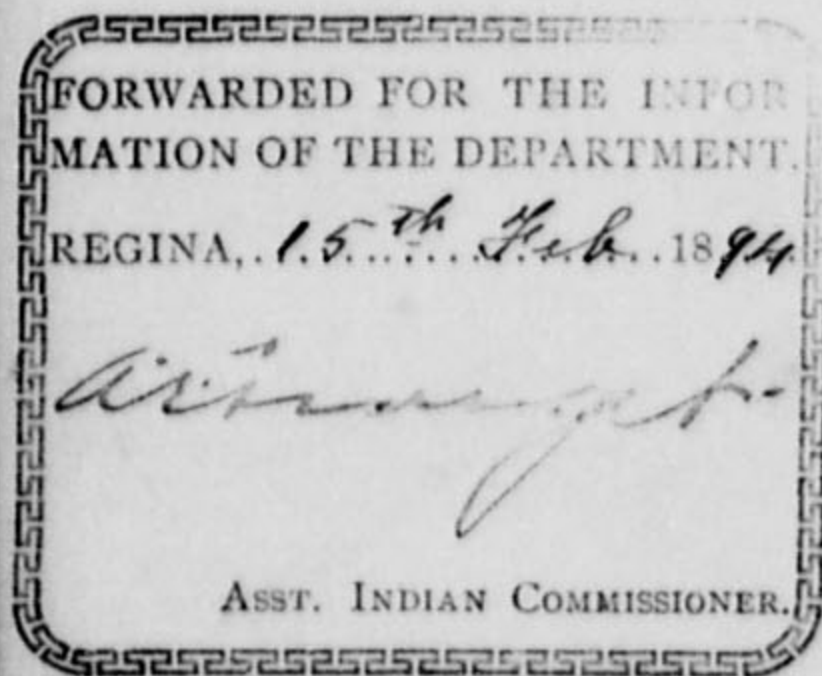 FORWARDED FOR THE INFOR
MATION OF THE DEPARTMENT.
REGINA, 15th Feb 1894
ASST. INDIAN COMMISSIONER.